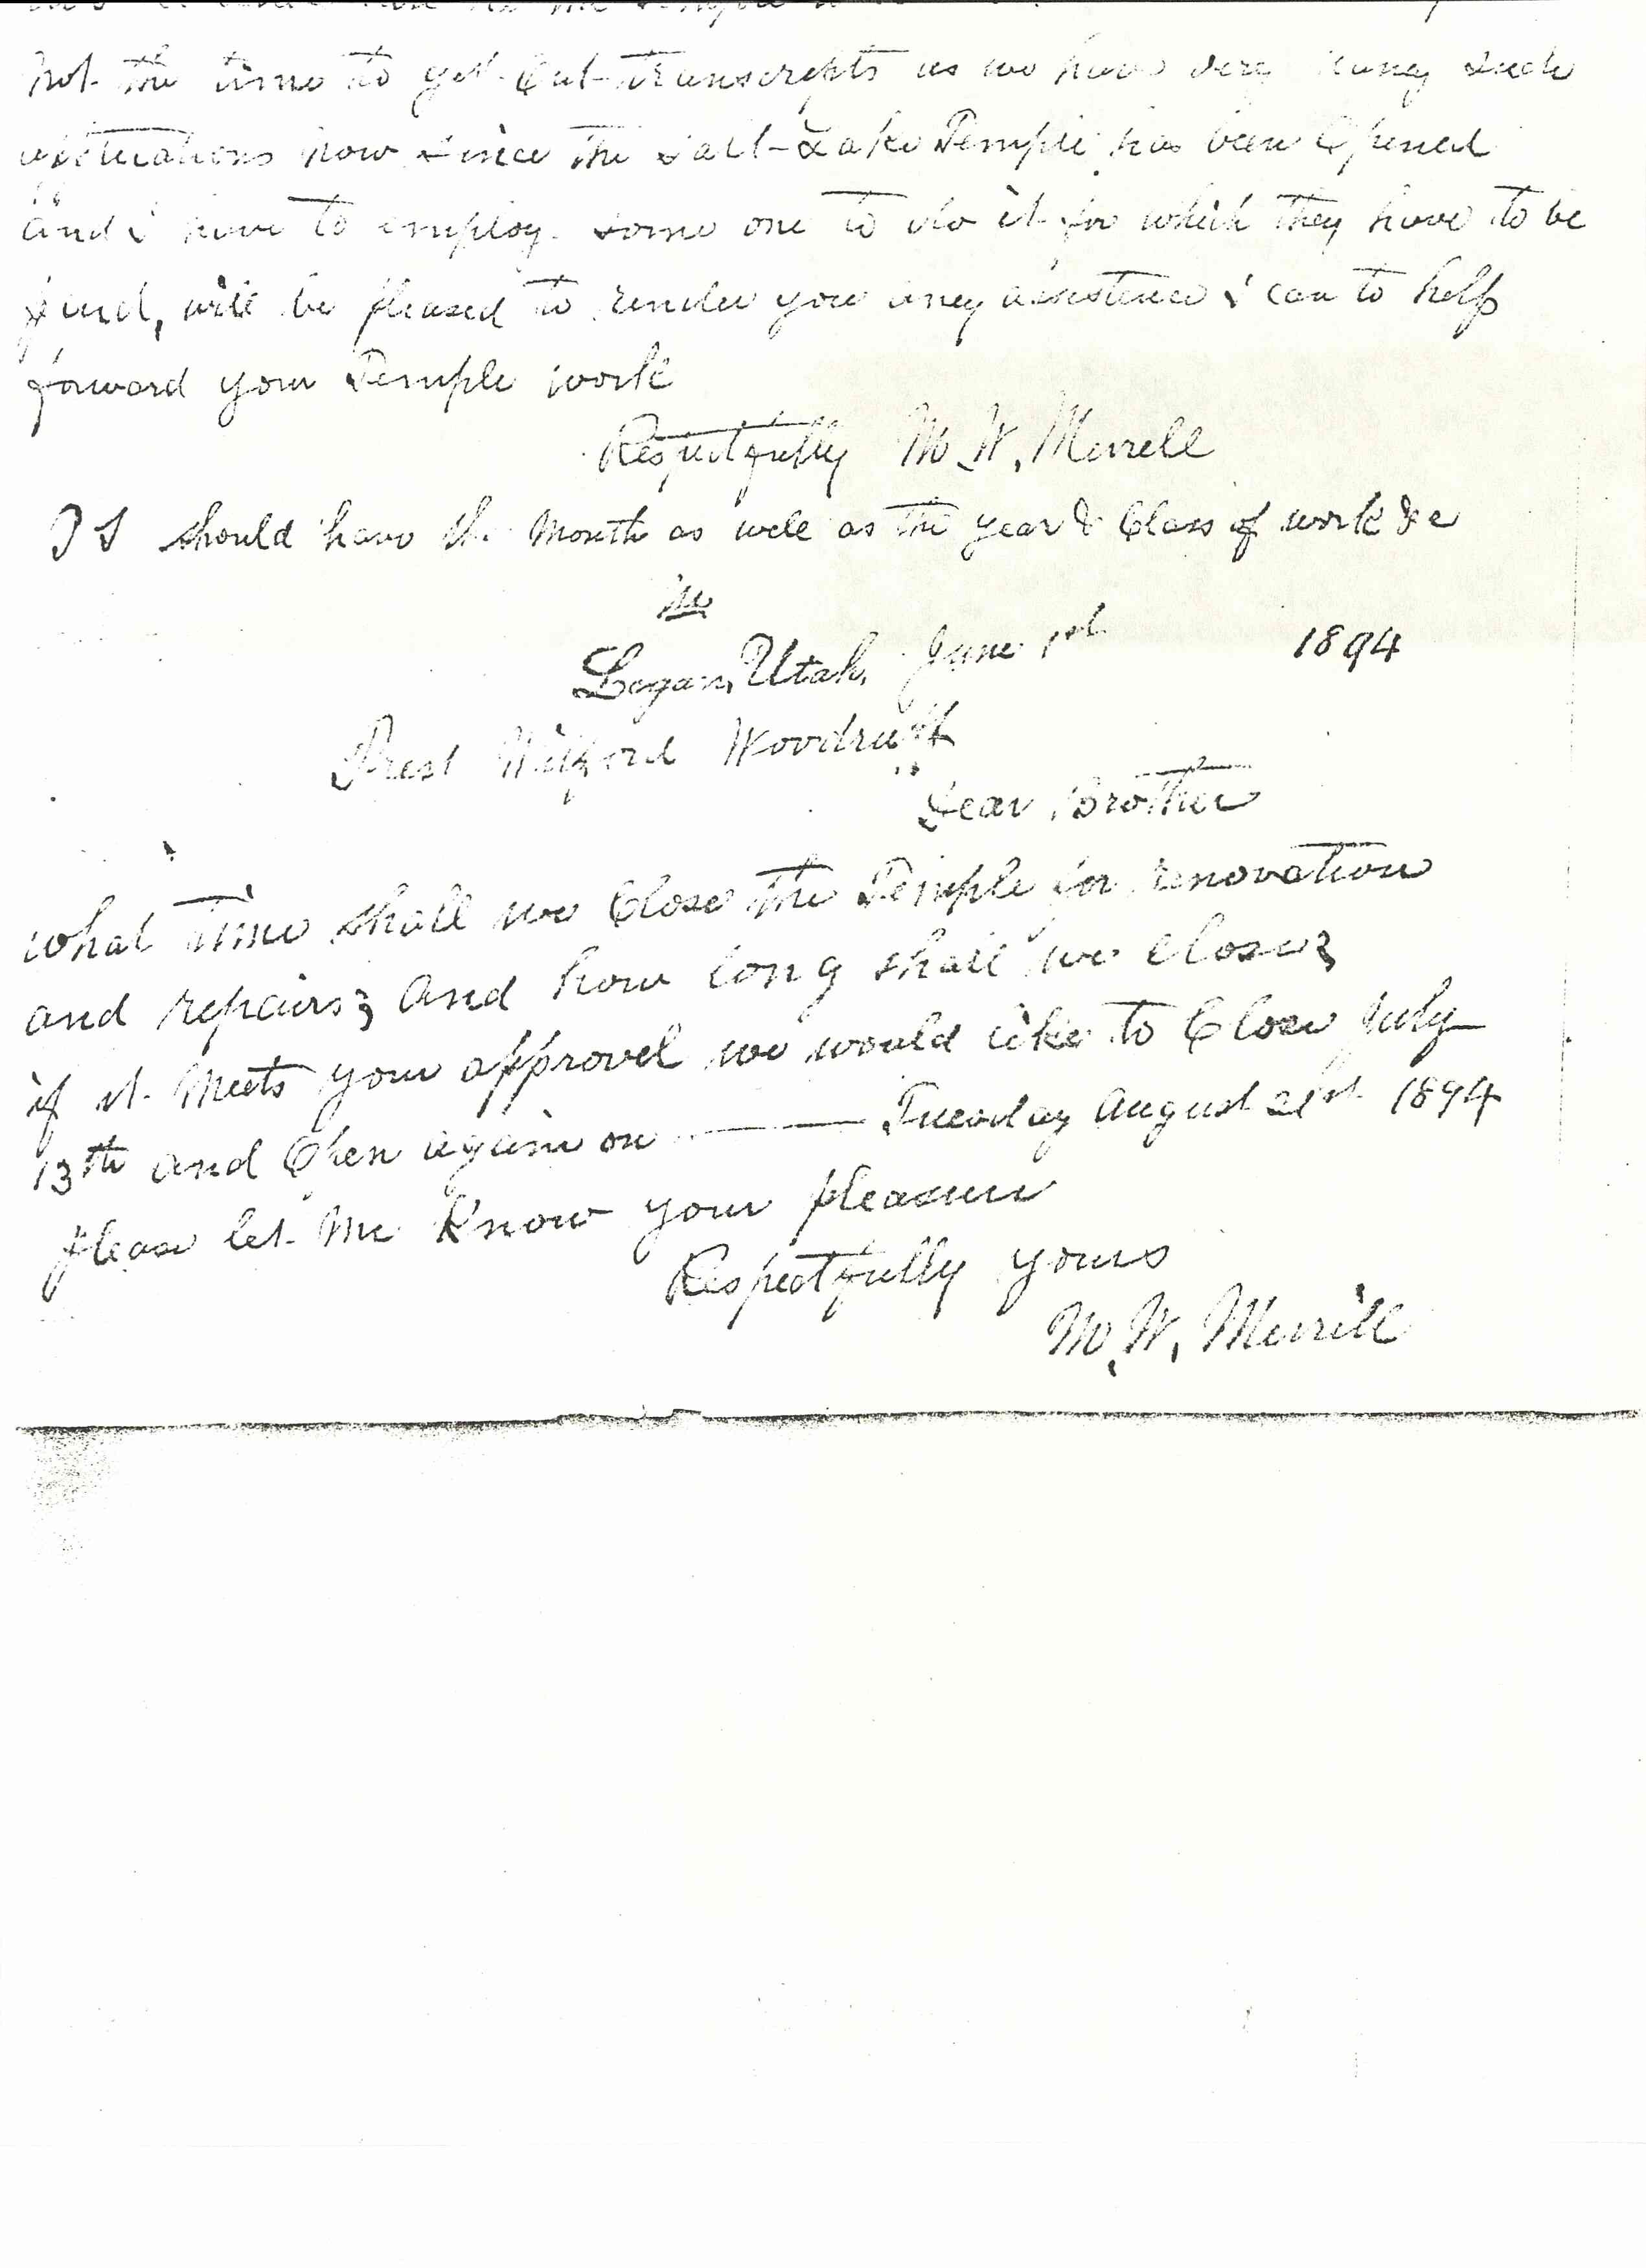 not the time to get out transcripts as we have very many such
applications now since the Salt-Lake Temple has been Opened
and i have to employ some one to do it for which they have to be
paid, will be pleased to render you any assistence i can to help
forward your Temple work
Respectfully M. W. Merrell
PS should have the Month as well as the year & Class of work &c
Logan, Utah, June 1st 1894
Prest Wilford Woodruff
Dear Brother
what Time shall we Close the Temple for renovation
and repairs; and how long shall we close;
if it Meets your approvel we would like to Close July
13th and Open again on ——— Tuesday August 21st 1894
please let Me Know your pleasure
Respectfully yours
M. W. Merrill